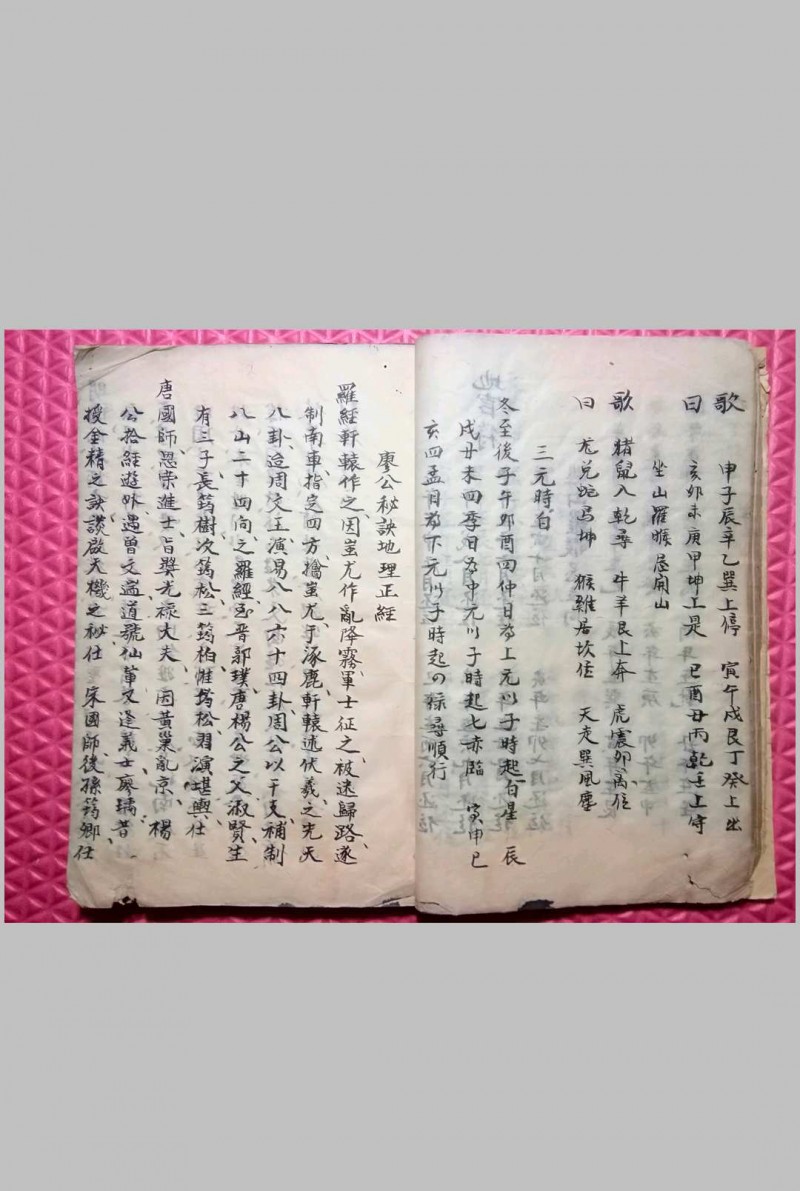 歌 申子辰辛乙巽上停 寅午戌艮丁癸上出
曰 亥卯未庚甲坤上是 巳酉丑丙乾壬上守
坐山羅睺忌開山
歌 猪鼠入乾尋 牛羊艮上奔 虎震卯离位
曰 龙兌蛇马坤 猴雞居坎位 天走巽風塵
三元時白
冬至後子午卯酉四仲日為上元以子時起白星 辰
戌丑未四季日為中元以子時起七赤臨 寅申巳
亥四孟日為下元以子時起の祿尋順行
廖公秘訣地理正經
羅經軒轅作之因蚩尤作亂降霧軍士征之、被迷歸路、遂
制南車、指定四方、擒蚩尤于涿鹿、軒轅述伏羲之先天
八卦、迨周文王演易八八六十四卦、周公以干支補制
八山二十四向、之羅經、至晋郭璞、唐楊公之父淑賢、生
有三子、長筠樹、次筠松、三筠柏、惟筠松習演堪輿、仕
唐國師、恩崇進士、旨獎光禄大夫、因黃巢亂京、楊
公拾經遊外、遇曾文遄、道號仙華、又逢義士廖瑀、昔
授金精之訣、談啟天機之秘、仕 宋國師、後孫筠鄉、仕